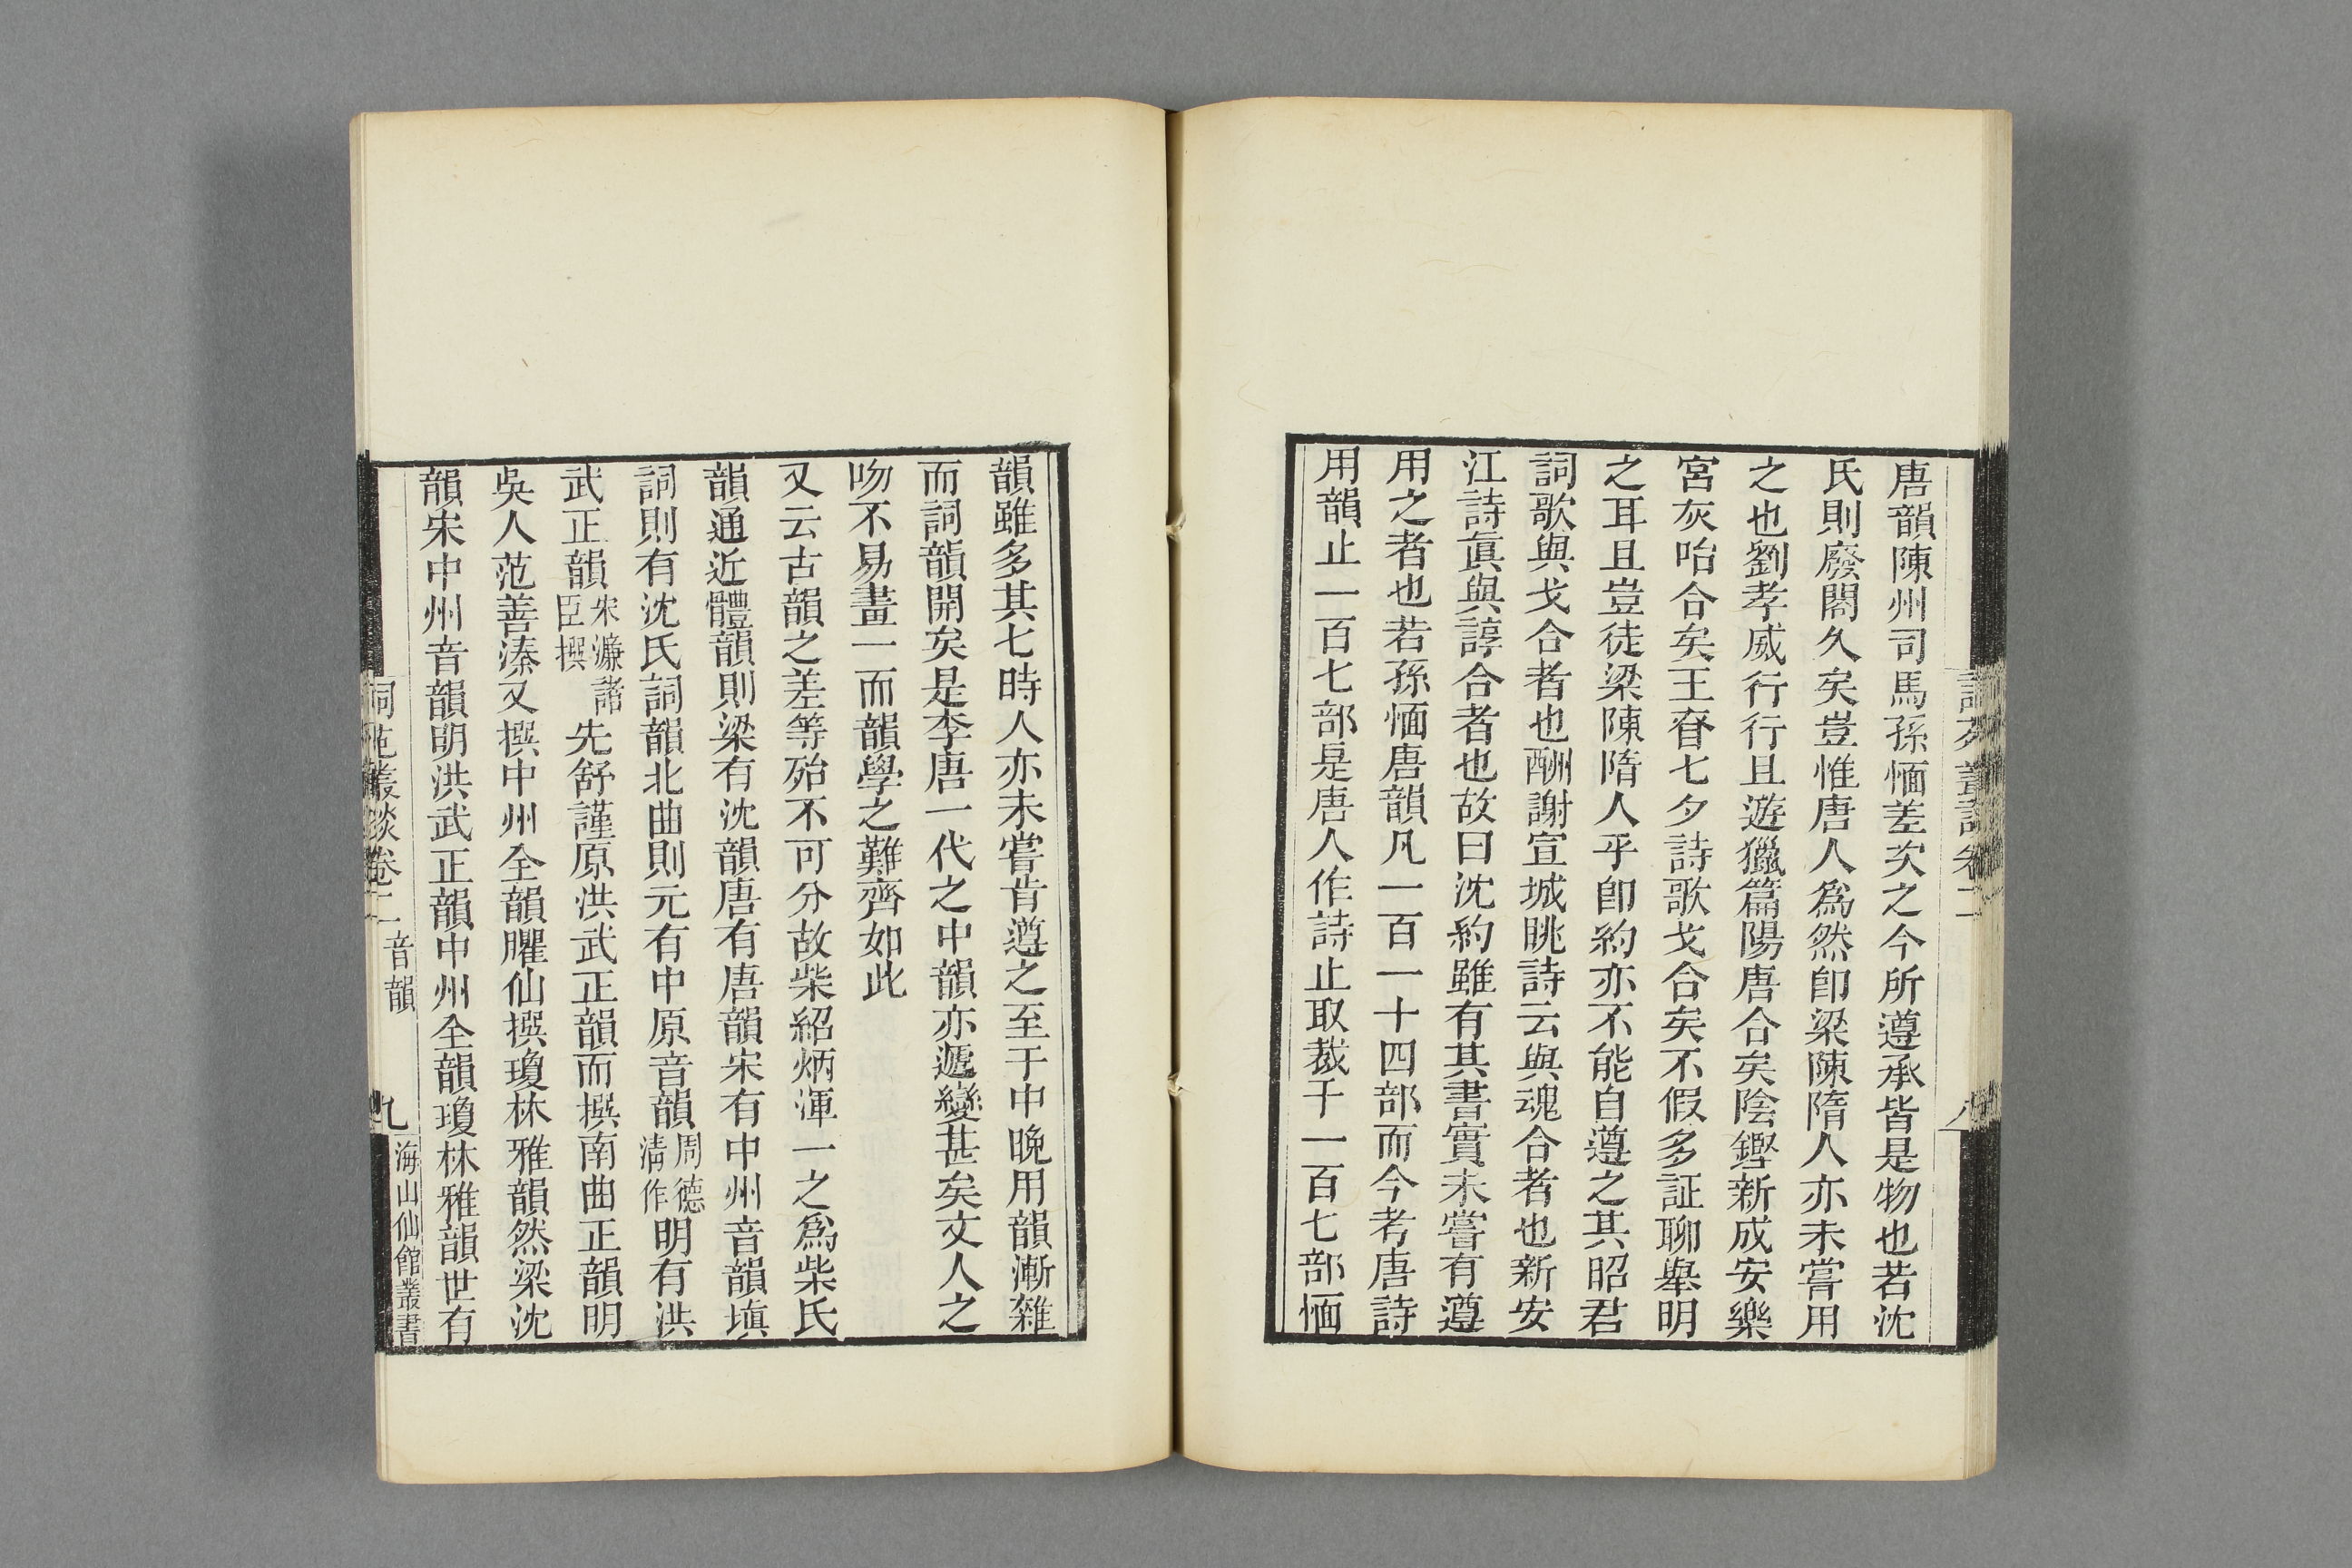 唐韻陳州司馬孫愐差次之今所遵承皆是物也若沈
氏則廢閣久矣豈惟唐人爲然卽梁陳隋人亦未嘗用
之也劉孝威行行且遊獵篇陽唐合矣陰鏗新成安樂
宮灰咍合矣王眘七夕詩歌戈合矣不假多証聊舉明
之耳且豈徒梁陳隋人乎卽約亦不能自遵之其昭君
詞歌與戈合者也酬謝宣城眺詩云與魂合者也新安
江詩眞與諄合者也故曰沈約雖有其書實未嘗有遵
用之者也若孫愐唐韻凡一百一十四部而今考唐詩
用韻止一百七部是唐人作詩止取裁于一百七部愐
韻雖多其七時人亦未嘗肯遵之至于中晚用韻漸雜
而詞韻開矣是李唐一代之中韻亦遞變甚矣文人之
吻不易畫一而韻學之難齊如此
又云古韻之差等殆不可分故柴紹炳渾一之爲柴氏
韻通近體韻則梁有沈韻唐有唐韻宋有中州音韻塡
詞則有沈氏詞韻北曲則元有中原音韻周德淸作明有洪
武正韻宋濂諸臣撰先舒謹原洪武正韻而撰南曲正韻明
吳人范善溱又撰中州全韻臞仙撰瓊林雅韻然梁沈
韻宋中州音韻明洪武正韻中州全韻瓊林雅韻世有
詞苑叢談卷二 音韻 九 海山仙館叢書